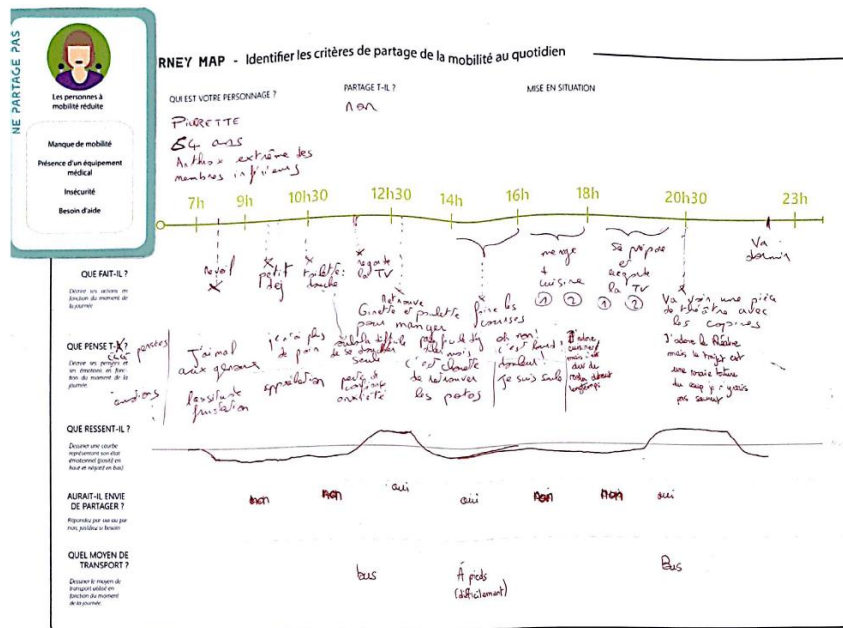 NE PARTAGE PAS
Les personnes à
mobilité réduite
Manque de mobilité
Présence d'un équipement
médical
Insécurité
Besoin d'aide
RNEY MAP - Identifier les critères de partage de la mobilité au quotidien
QUI EST VOTRE PERSONNAGE ?
PIERRETTE
54 ans
extrême des
membres inférieurs
PARTAGE T-IL ?
non
MISE EN SITUATION
7h 9h 10h30 12h30 14h 16h 18h 20h30 23h
QUE FAIT-IL ?
Décrire ses actions en
fonction du moment de
la journée
petit
dej
toilette :
douche
regarde
la TV
Retrouve
Ginette et paulette
pour manger
faire les
courses
+
cuisine
1 2
et
regarde
la TV
1 2
Va voir une pièce
de théâtre avec
les copines
Va
dormir
QUE PENSE T-IL ?
Décrire ses pensées et
ses émotions en fonc-
tion du moment de la
journée
pensées
émotions
J'ai mal
aux genoux
lassitude
frustration
plus
de pain
de se doucher
seule
anxiété
c'est chouette
de retrouver
les potos
oh non !
c'est lourd !
douleur !
je suis seule
J'adore
cuisiner
mais
rester debout
longtemps
J'adore le théâtre
mais le trajet est
une vraie torture
du coup je n'y vais
pas souvent
QUE RESSENT-IL ?
Dessiner une courbe
représentant son état
émotionnel (positif en
haut et négatif en bas)
AURAIT-IL ENVIE
DE PARTAGER ?
Répondez par oui ou par
non, justifiez si besoin
non non oui oui non non oui
QUEL MOYEN DE
TRANSPORT ?
Dessiner le moyen de
transport utilisé en
fonction du moment
de la journée
bus
À pieds
(difficilement)
Bus